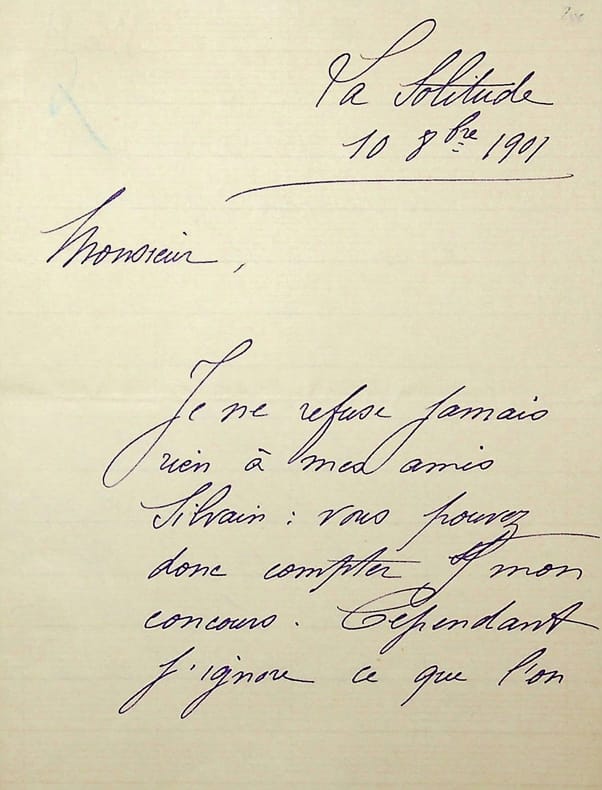 La Solitude
10 8bre 1901
Monsieur,
Je ne refuse jamais
rien à mes amis
Silvain : vous pouvez
donc compter sr mon
concours. Cependant
j'ignore ce que l'on